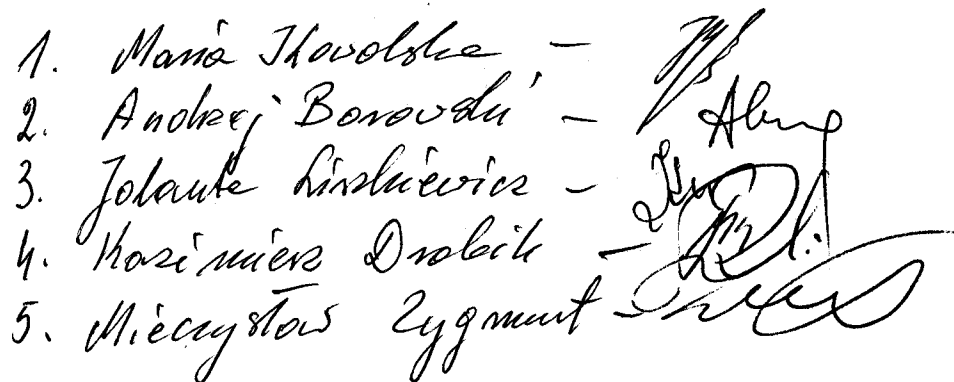 1. Maria Skowolska –
2. Andrzej Borowski –
3. Jolanta Liszkiewicz –
4. Kazimierz Drobik –
5. Mieczysław Zygmunt –